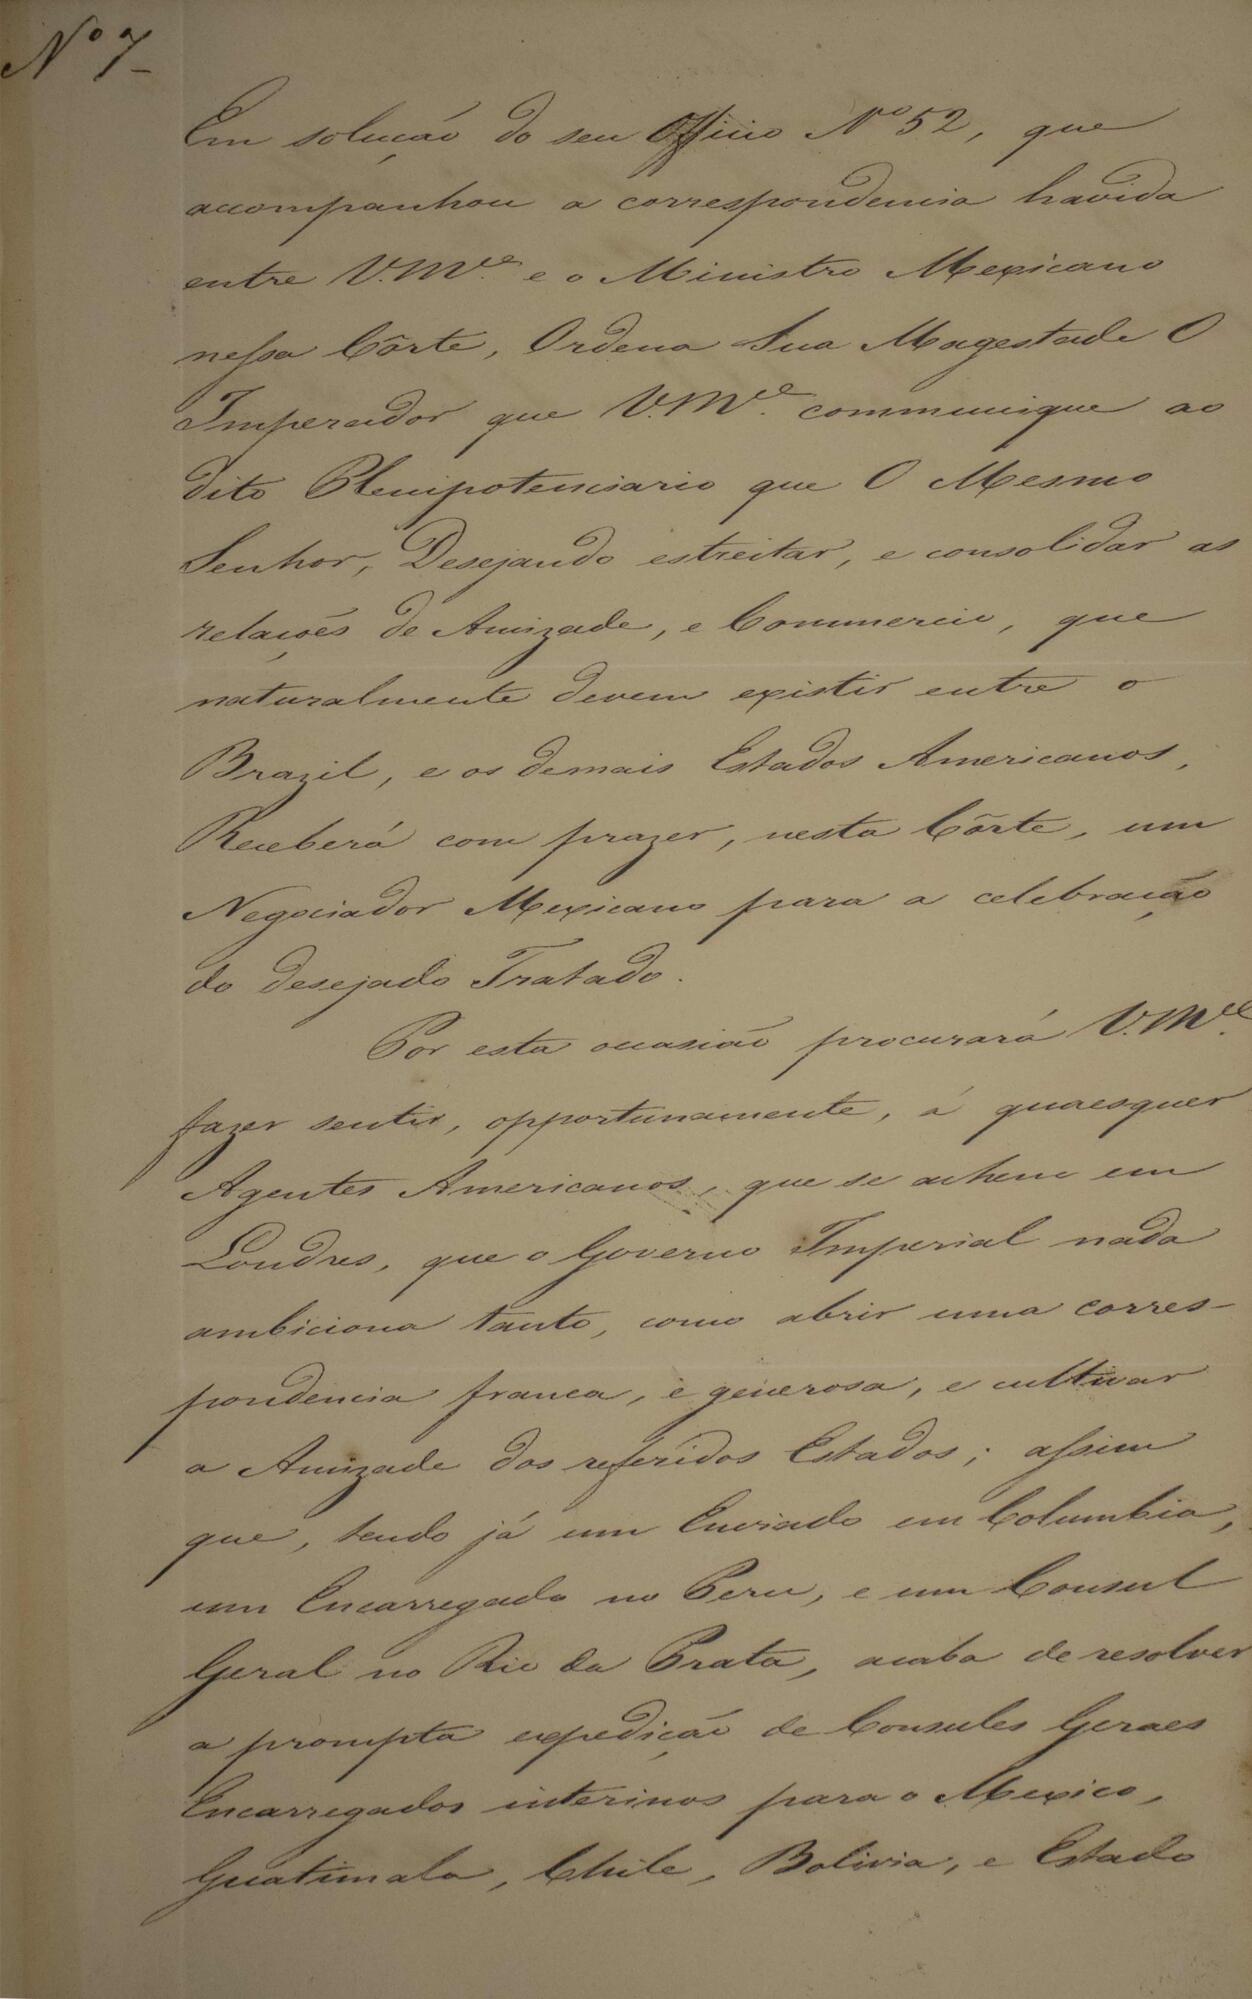 Nº 7
Em solução do seu Officio Nº 52, que
accompanhou a correspondencia havida
entre V.M.ce e o Ministro Mexicano
nessa Côrte, Ordena Sua Magestade O
Imperador que V.M.ce communique ao
dito Plenipotenciario que O Mesmo
Senhor, Desejando estreitar, e consolidar as
relações de Amizade, e Commercio, que
naturalmente devem existir entre o
Brazil, e os demais Estados Americanos,
Receberá com prazer, nesta Côrte, um
Negociador Mexicano para a celebração
do desejado Tratado.
Por esta occasião procurará V.M.ce
fazer sentir, opportunamente, á quaesquer
Agentes Americanos, que se achem em
Londres, que o Governo Imperial nada
ambiciona tanto, como abrir uma corres-
pondencia franca, e generosa, e cultivar
a Amizade dos referidos Estados; assim
que, tendo já um Enviado em Columbia,
um Encarregado no Peru, e um Consul
Geral no Rio da Prata, acaba de resolver
a prompta expedição de Consules Geraes
Encarregados interinos para o Mexico,
Guatimala, Chile, Bolivia, e Estado